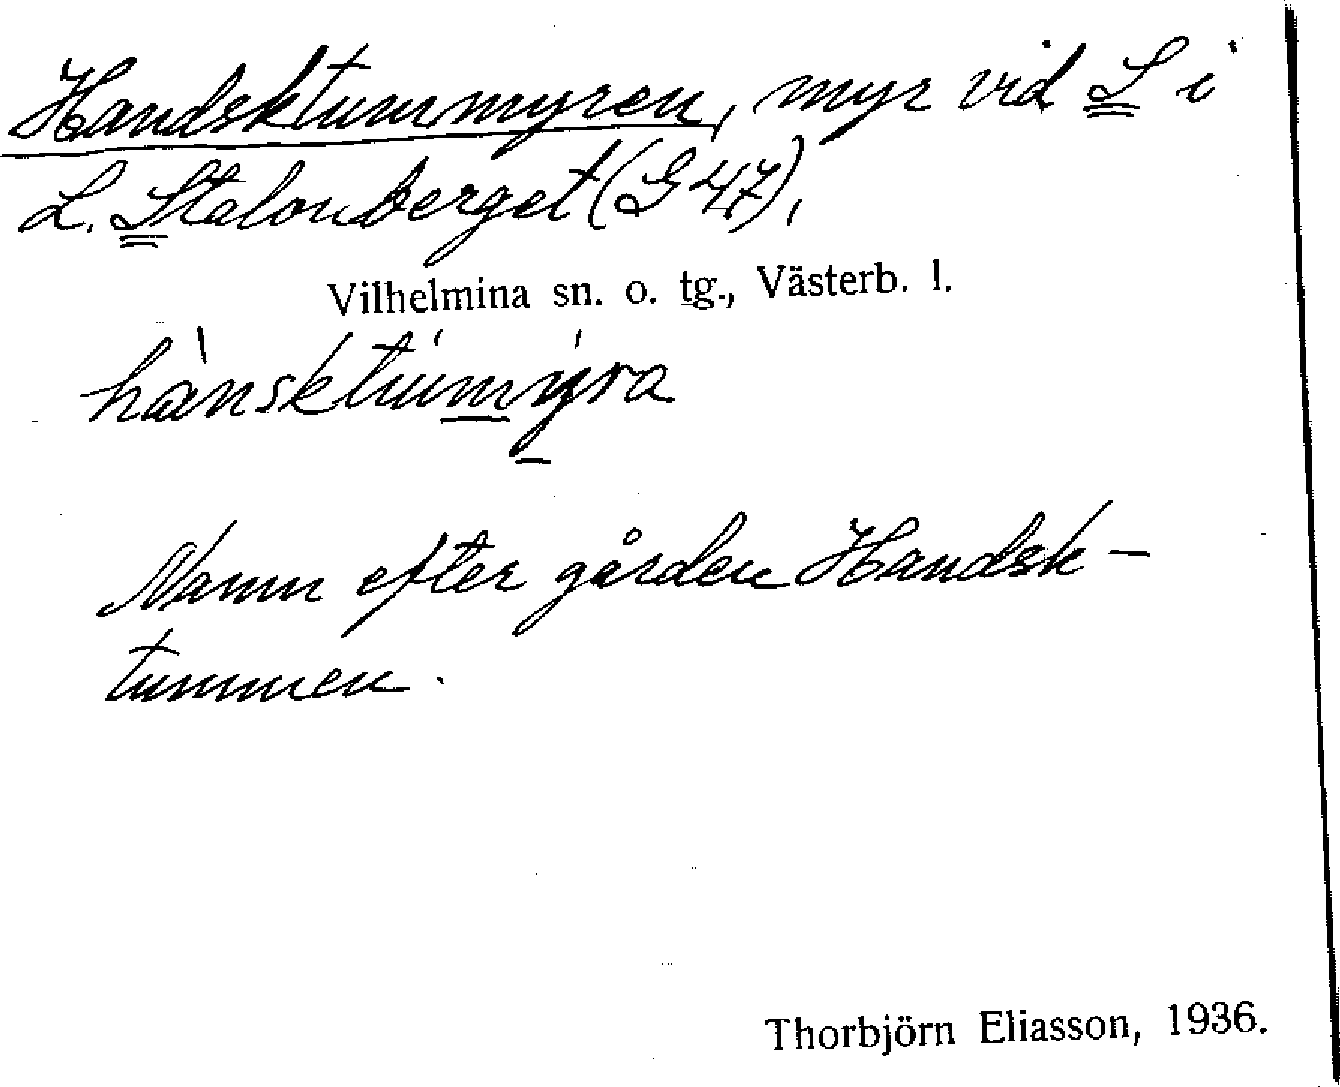 Handsktummyren, myr vid S i
L. Stalonberget (G 47),
Vilhelmina sn. o. tg., Västerb. l.
hänsktumýra
Namn efter gården Handsk-
tummen.
Thorbjörn Eliasson, 1936.